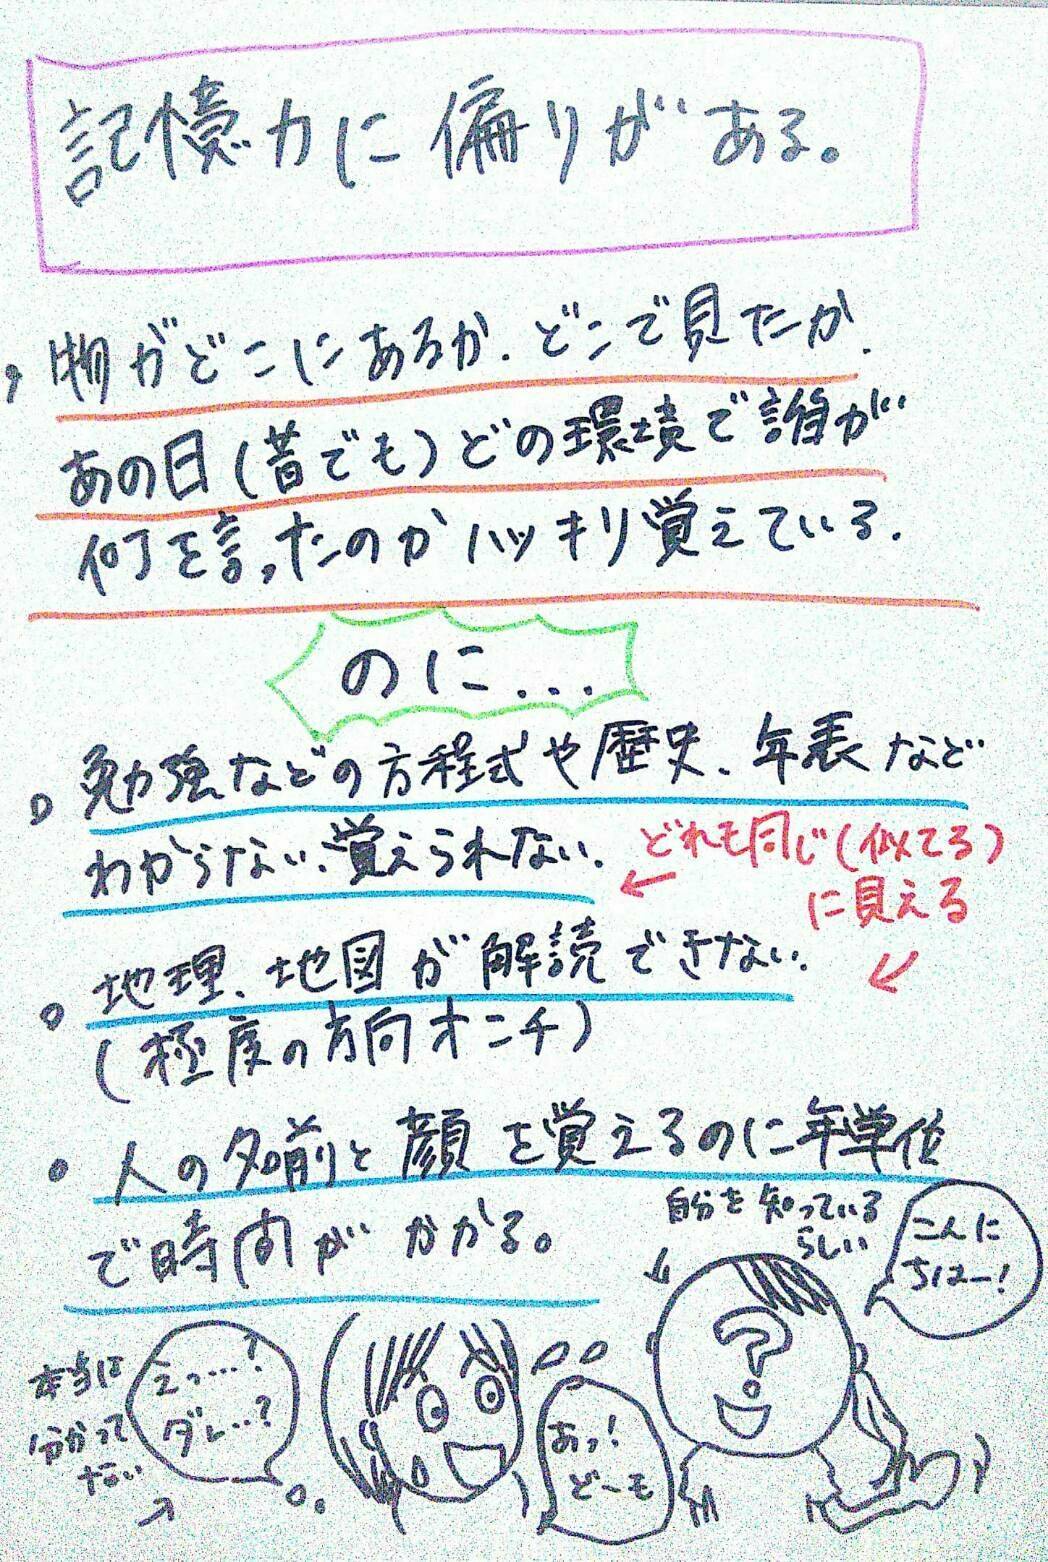 記憶力に偏りがある。
物がどこにあるか、どこで見たか、
あの日(昔でも)どの環境で誰が
何を言ったのかハッキリ覚えている。
のに...
勉強などの方程式や歴史、年表など
わからない、覚えられない。
どれも同じ(似てる)
に見える
地理、地図が解読できない。
(極度の方向オンチ)
人の名前と顔を覚えるのに年単位
で時間がかかる。
自分を知っている
らしい
こんに
ちはー!
本当に
分かって
ない
えっ…?
ダレ…?
あっ!
どーも
?